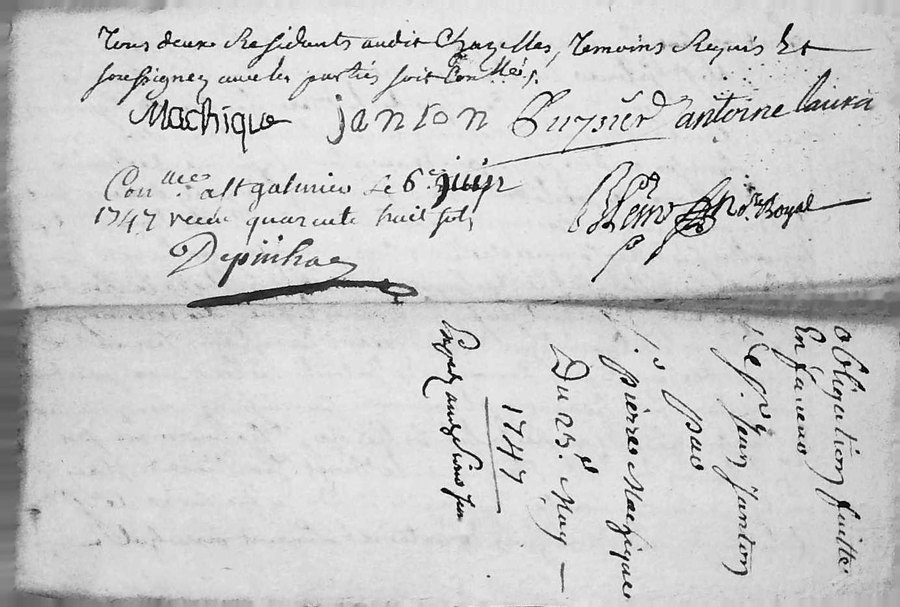 Tous deux Residants audit Chazelles, Temoins Requis Et
soussignez avec les parties soit Con.llé.
Machique janton antoine laura
Con.lle a St galmier Le 6.e juin
1747 receu quarente huit sols
Depinhac
No.re Royal
obligation faitte
En faveur
De S.r Jean Janton
par
S.r pierre Machique
Du 25.e May
1747